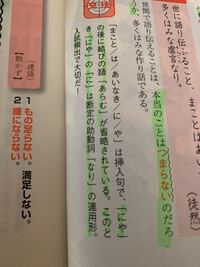 世に語り伝ふること、まことは
多くはみな虚言なり。
(徒然
世間で語り伝えることは、本当のことはつまらないのだろ
うか、多くはみな作り話である。
「まこと/は/あいなき/に/や」は挿入句で、「にや」
の後に結びの語「あらむ」が省略されている。このと
き「にや」の「に」は断定の助動詞「なり」の連用形。
入試頻出で大切だ!
連語
【飽かず】
1 もの足らない。満足しない。
2 嫌にならない。